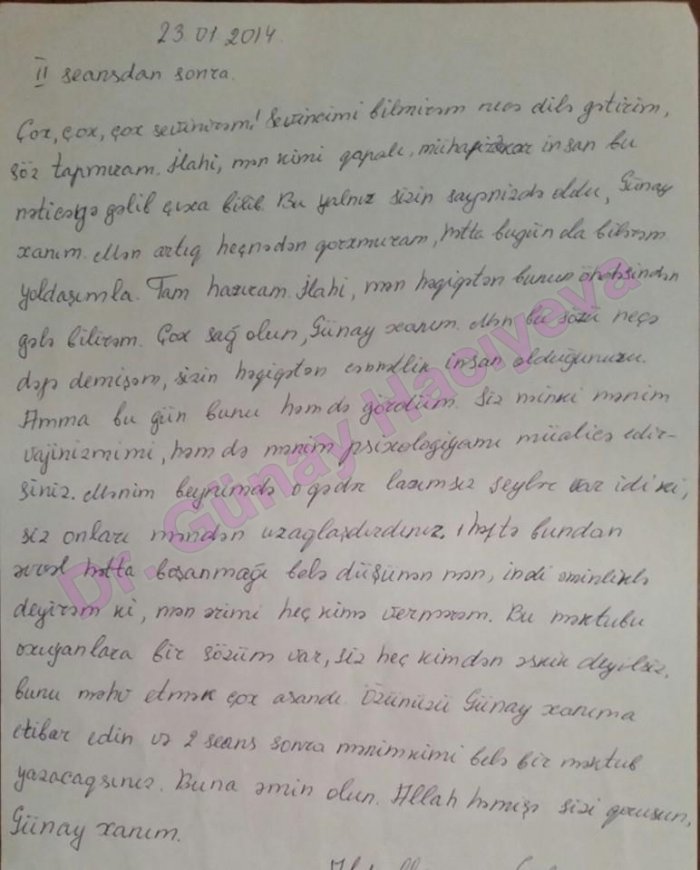 23.01.2014.
II seansdan sonra.
Çox, çox, çox sevinirəm! Sevincimi bilmirəm necə dilə gətirim,
söz tapmıram. İlahi, mən kimi qapalı, mühafizəkar insan bu
nəticəyə gəlib çıxa bilib. Bu yalnız sizin sayənizdə oldu, Günay
xanım. Mən artıq heçnədən qorxmuram, hətta bugün də bilirəm
yoldaşımla. Tam hazıram. İlahi, mən həqiqətən bunun öhdəsindən
gələ bilirəm. Çox sağ olun, Günay xanım. Mən bu sözü neçə
dəfə demişəm, sizin həqiqətən cənnətlik insan olduğunuzu.
Amma bu gün bunu həm də gördüm. Siz ninki mənim
vajinizmimi, həm də mənim psixologiyamı müalicə edir-
siniz. Mənim beynimdə o qədər lazımsız şeylər var idi ki,
siz onları məndən uzaqlaşdırdınız. 1 həftə bundan
əvvəl hətta boşanmağı belə düşünən mən, indi əminliklə
deyirəm ki, mən ərimi heç kimə vermərəm. Bu məktubu
oxuyanlara bir sözüm var, siz heç kimdən əskik deyilsiz,
bunu məhv etmək çox asandı. Özünüzü Günay xanıma
etibar edin və 2 seans sonra mənimkimi belə bir məktub
yazacaqsınız. Buna əmin olun. Allah həmişə sizi qorusun,
Günay xanım.
Dr. Günay Hacıyeva